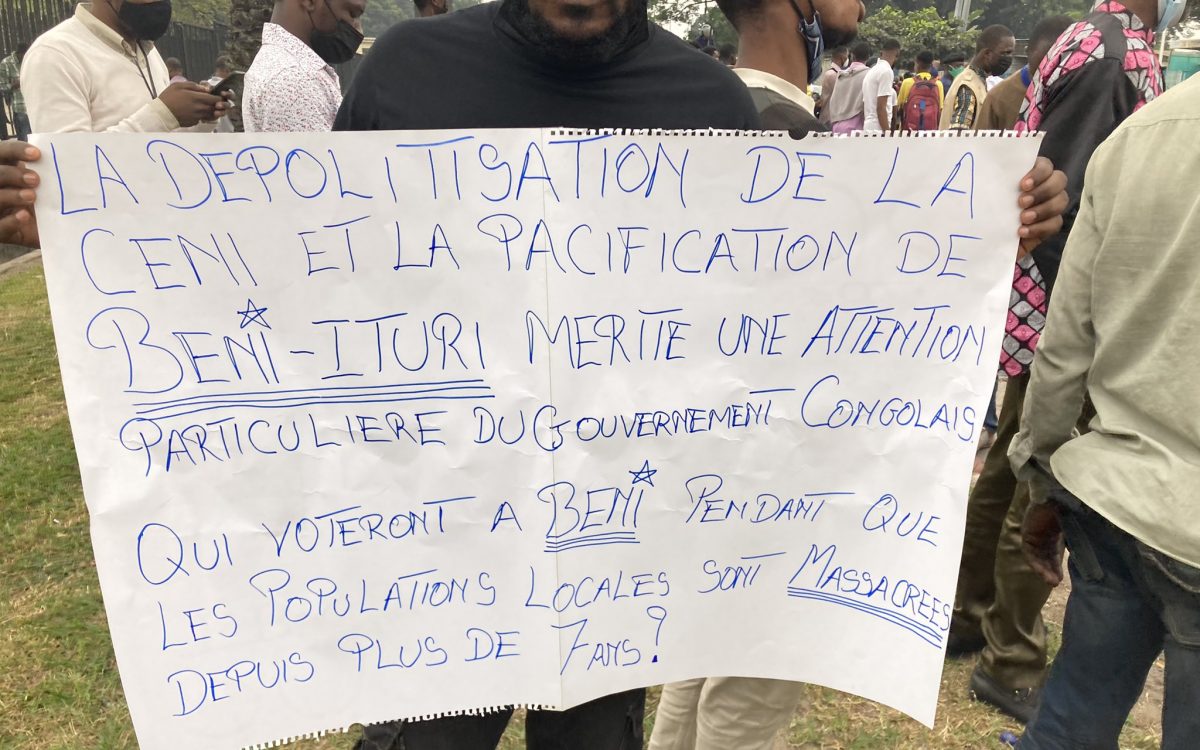 LA DEPOLITISATION DE LA
CENI ET LA PACIFICATION DE
BENI-ITURI MERITE UNE ATTENTION
PARTICULIERE DU GOUVERNEMENT CONGOLAIS
QUI VOTERONT A BENI PENDANT QUE
LES POPULATIONS LOCALES SONT MASSACREES
DEPUIS PLUS DE 7 ans?